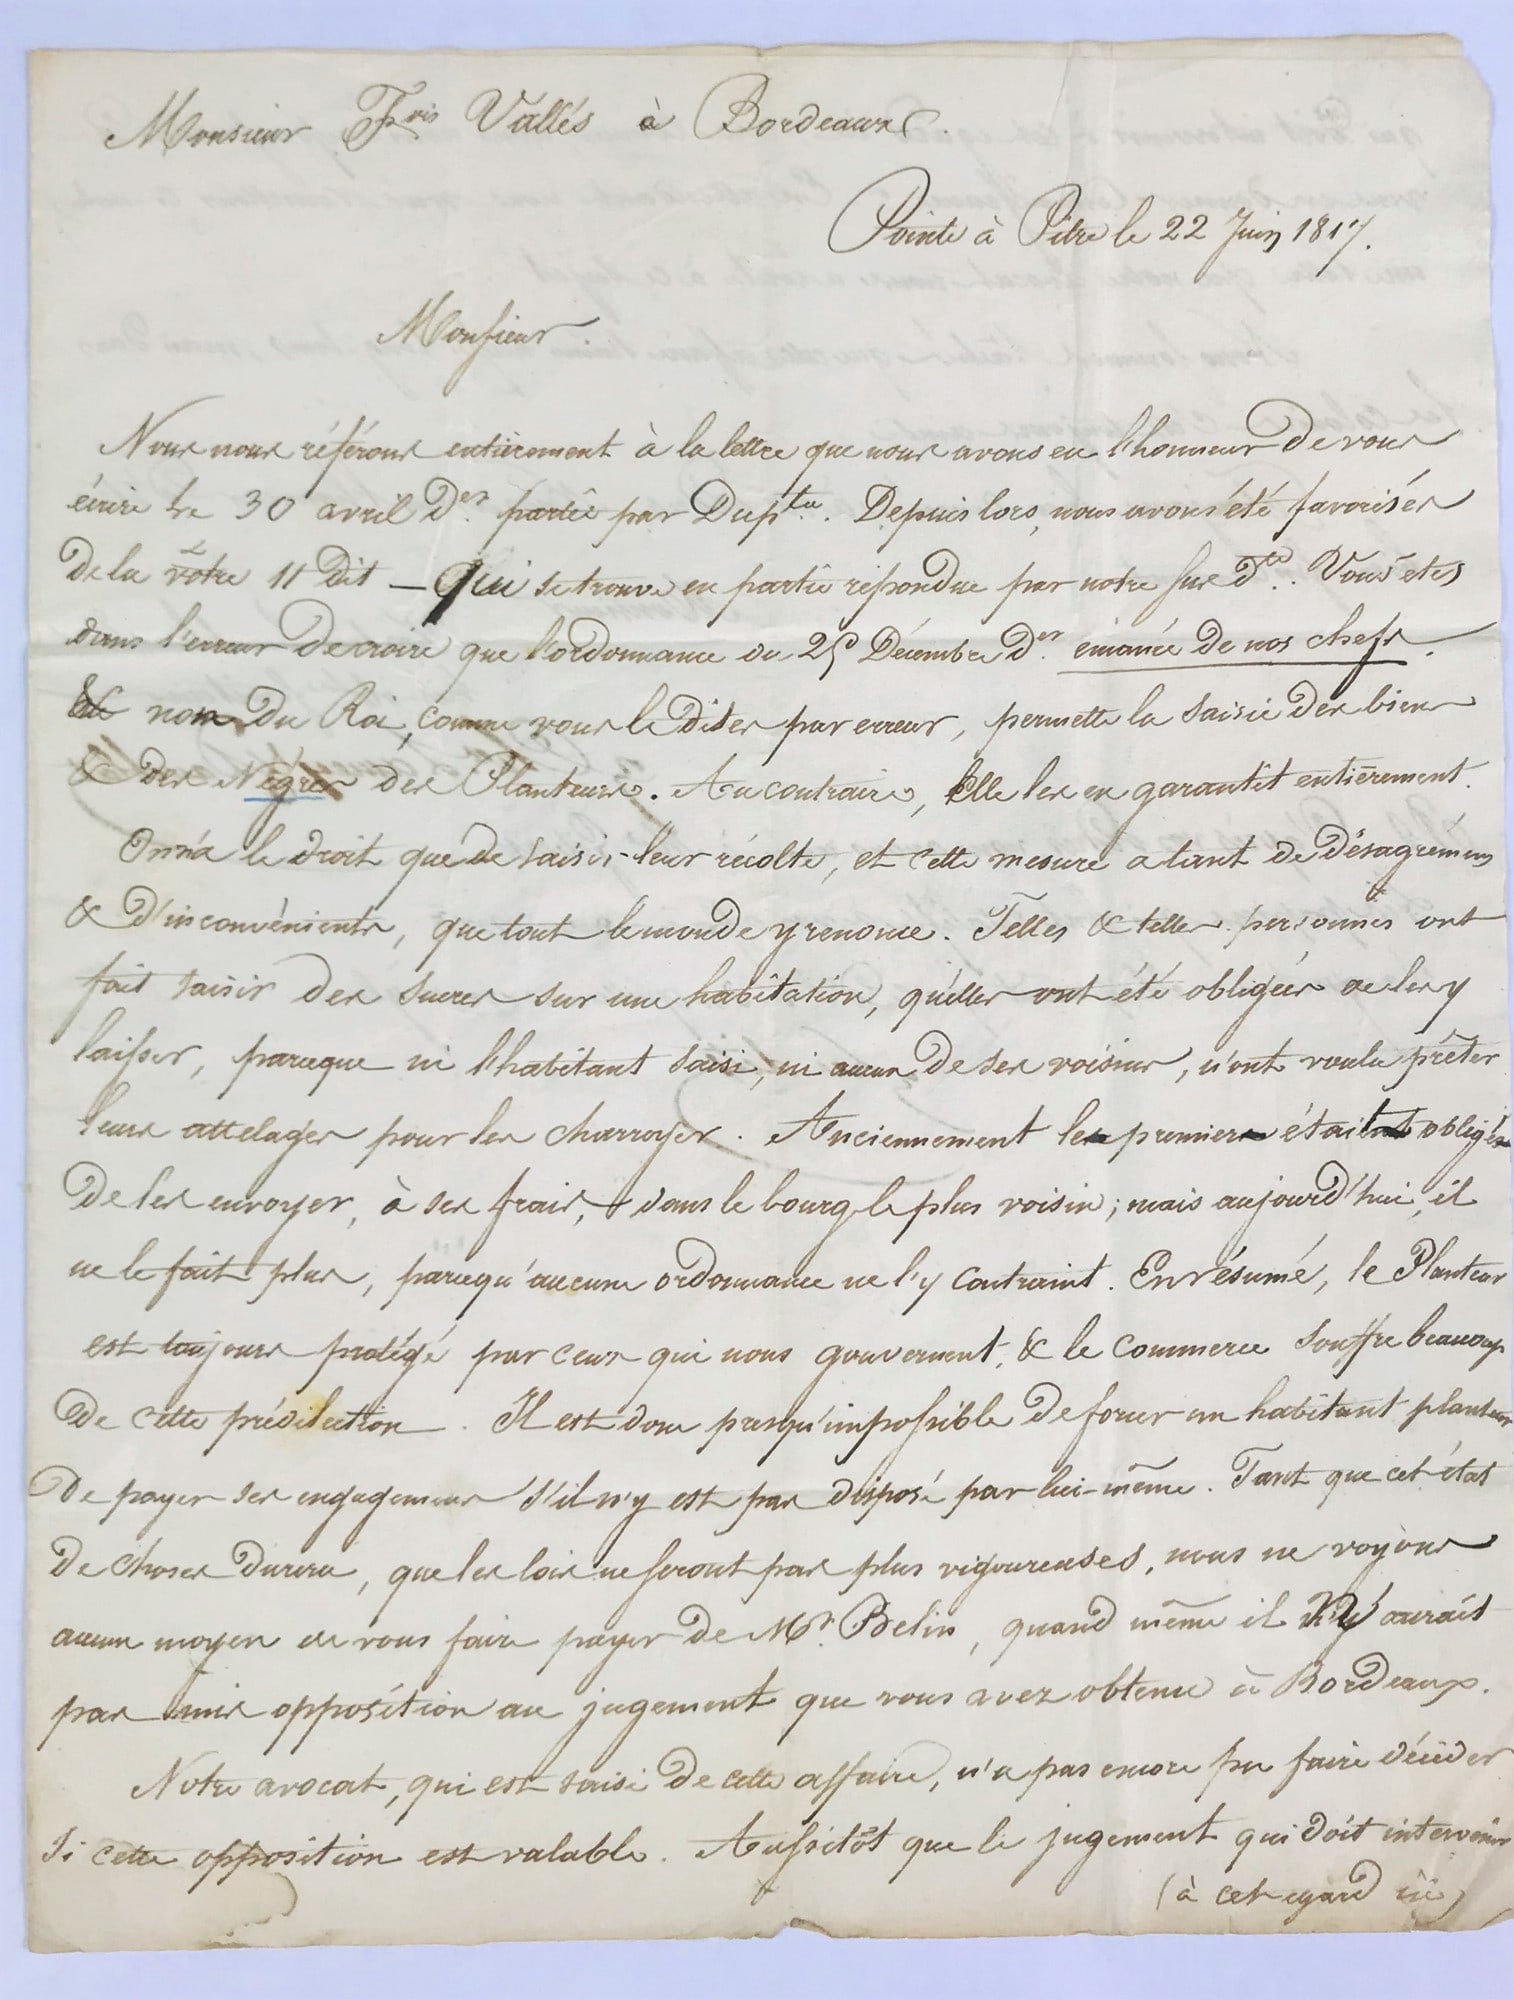 Monsieur Fois Vallés à Bordeaux.
Pointe à Pitre le 22 Juin 1817.
Monsieur
Nous nous référons entièrement à la lettre que nous avons eu l'honneur De vous
écrire le 30 avril Der. partie par Dupta. Depuis lors, nous avons été favorisés
De la vôtre 11 Dit — Qui se trouve en partie répondue par notre sus dte. Vous êtes
dans l'erreur De croire que l'ordonnance du 25 Décembre Der. émanée De nos chefs.
& non Du Roi, comme vous le Dites par erreur, permette la saisie Des biens
& des Nègres des Planteurs. Au contraire, Elle les en garantit entièrement.
On n'a le droit que de saisir leur récolte, et cette mesure a tant de Désagrémens
& D'inconvénients, que tout le monde y renonce. Telles & telles personnes ont
fait saisir des sucres sur une habitation, qu'elles ont été obligées de les y
laisser, parceque ni l'habitant saisi, ni aucun De ses voisins, n'ont voulu prêter
leurs attelages pour les charroyer. Anciennement le premier était obligé
De les envoyer, à ses frais, dans le bourg le plus voisin; mais aujourd'hui, il
ne le fait plus, parcequ'aucune ordonnance ne l'y contraint. En résumé, le Planteur
est toujours protégé par ceux qui nous gouvernent, & le commerce souffre beaucoup
De cette prédilection. Il est donc presqu'impossible De forcer un habitant planteur
De payer ses engagemens s'il n'y est pas disposé par lui-même. Tant que cet état
De choses Durera, que les lois ne seront pas plus vigoureuses, nous ne voyons
aucun moyen de vous faire payer De Mr. Belin, quand même il n'y aurait
pas mis opposition au jugement que vous avez obtenu à Bordeaux.
Notre avocat, qui est saisi De cette affaire, n'a pas encore pu faire décider
si cette opposition est valable. Aussitôt que le jugement qui doit intervenir
(à cet egard